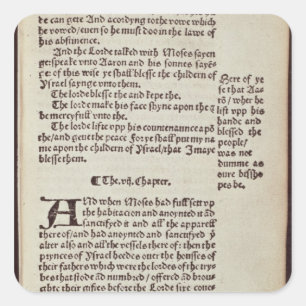 he can gette And acordyng to the vowe which
he vowed/ euen so he must doo in the lawe of
his abstinence.
And the Lorde talked with Moses sayen=
ge: speake vnto Aaron and his sonnes sayen
ge: of this wise ye shall blesse the childern of
Ysrael saynge vnto them.
The lorde blesse the and kepe the.
The lorde make his face shyne apon the &
be mercyfull vnto the.
The lord lifte vpp his countenaunce apō
the/ and geue the peace. For ye shall put my na
me apon the childern of Ysrael/ that I maye
blesse them.
Here of ye
se that Aa=
rō/ wher he
lift vpp his
hande and
blessed the
people/
was not
dumme as
oure bissho
pes be.
¶ The .vij. Chapter.
AND when Moses had full sett vp
the habitacion and anoynted it ād
sanctifyed it and all the apparell
there of/ and had anoynted and sanctifyed ye
alter also and all the vessels there of: then the
prynces of Ysrael heedes ouer the housses of
their fathers which were the lordes of the try
bes that stode ād numbred/ offered ād brought
their giftes before the Lorde sixe coue